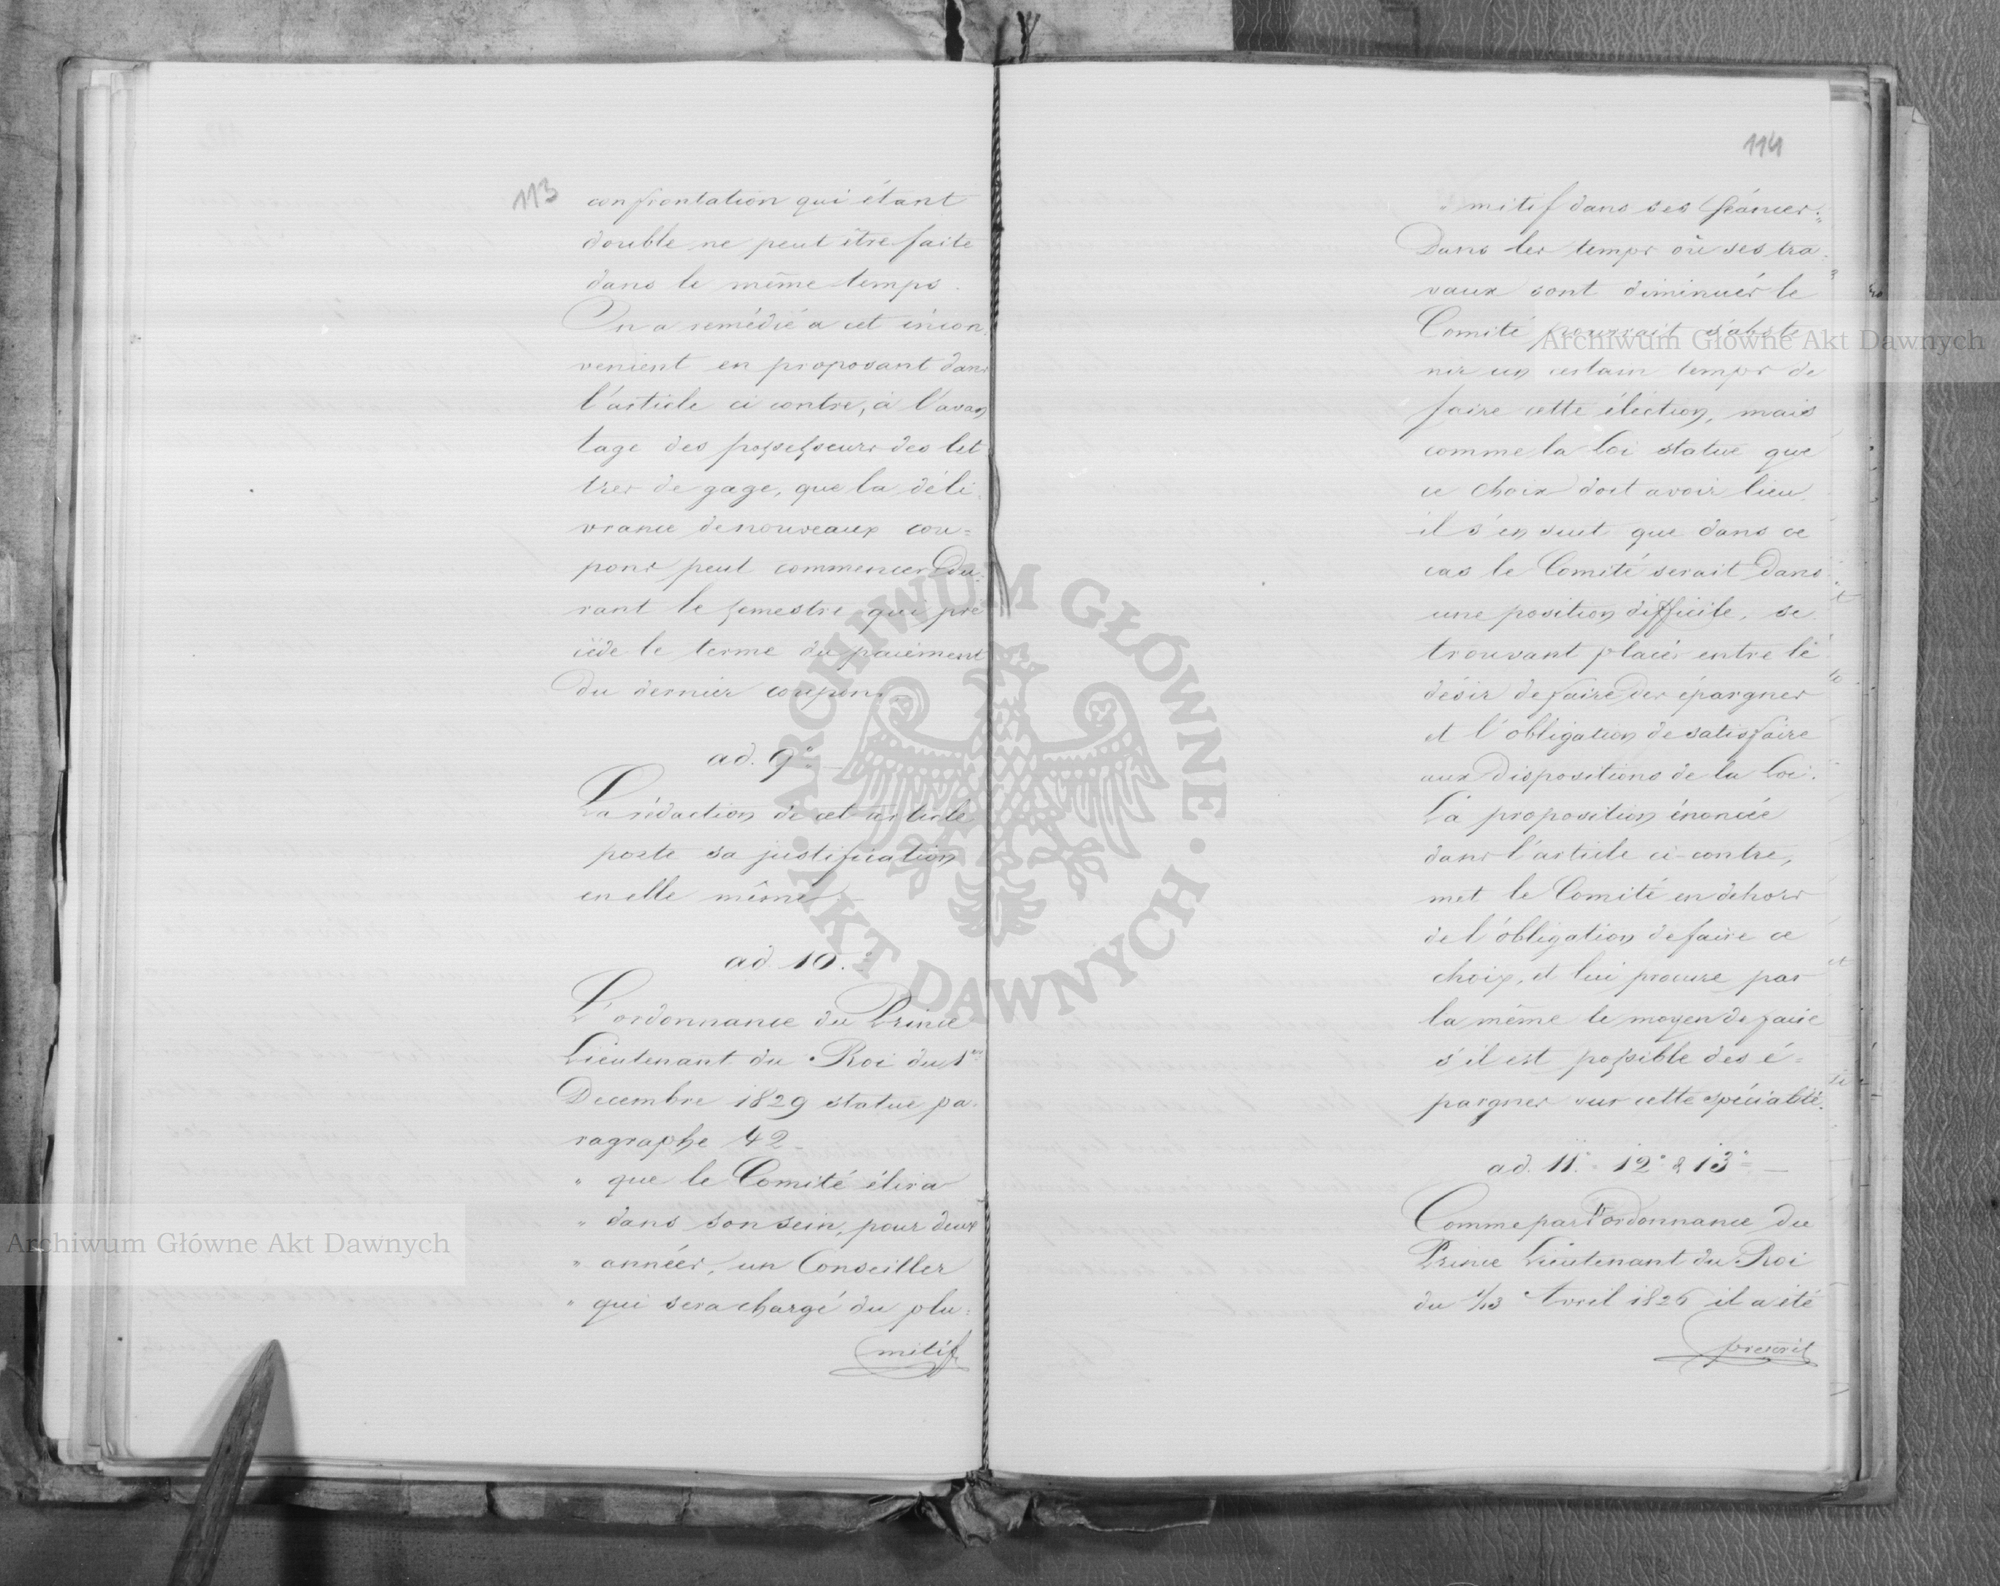 113
confrontation qui étant
double ne peut être faite
dans le même temps.
On a remédié a cet incon-
venient en proposant dans
l'article ci contre, à l'avan
tage des possesseurs des let
tres de gage, que la déli-
vrance de nouveaux cou=
pons peut commencer Du-
rant le semestre qui pré
cède le terme du paiement
Du dernier coupon.
ad. 9°.
La rédaction de cet article
porte sa justification
en elle même
ad. 10.°
L'ordonnance du Prince
Lieutenant du Roi du 1er
Decembre 1829 statue pa-
ragraphe 42 -
" que le Comité élira
" dans son sein, pour deux
" années, un Conseiller
" qui sera chargé du plu=
mitif
114
" mitif dans ses séances."
Dans les temps où ses tra-
vaux sont diminués le
Comité pourrait s'abste
nir un certain temps de
faire cette élection, mais
comme la Loi statue que
ce choix doit avoir lieu,
il s'en suit que dans ce
cas le Comité serait Dans
une position difficile, se
trouvant placé entre le
désir de faire des épargnes
et l'obligation de satisfaire
aux Dispositions de la Loi.
La proposition énoncée
dans l'article ci-contre,
met le Comité en dehors
de l'obligation de faire ce
choix, et lui procure par
la même le moyen de faire
s'il est possible des é=
pargnes sur cette spécialité.
ad. 11.° 12° & 13° =
Comme par l'ordonnance du
Prince Lieutenant du Roi
du 1/13 Avril 1826 il a été
prescrit
Archiwum Główne Akt Dawnych
Archiwum Główne Akt Dawnych
ARCHIWUM GŁÓWNE · AKT DAWNYCH ·